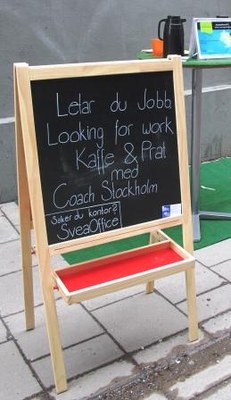 Letar du Jobb
Looking for work
Kaffe & Prat
med
Coach Stockholm
Söker du kontor?
SveaOffice